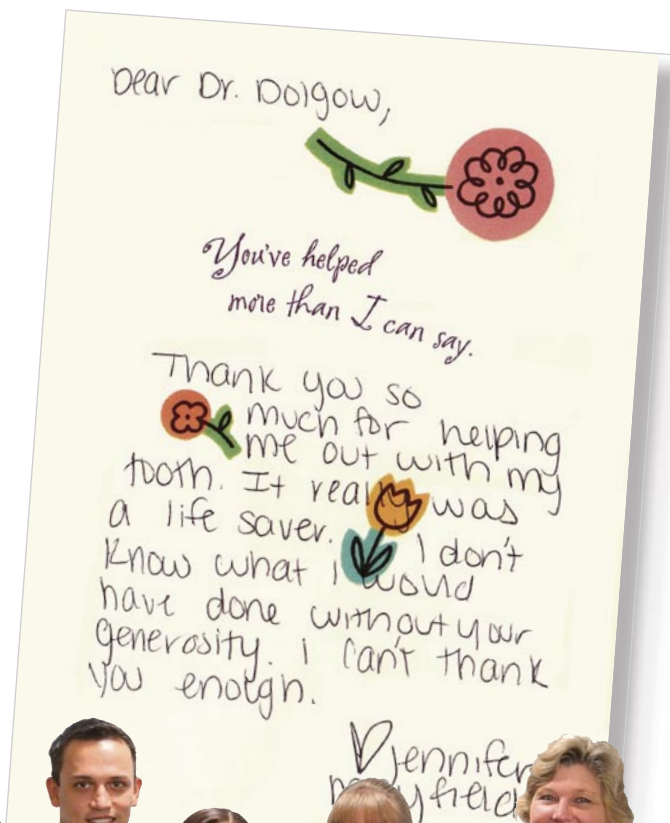 Dear Dr. Dolgow,
You've helped
more than I can say.
Thank you so
much for helping
me out with my
tooth. It really was
a life saver. I don't
know what I would
have done without your
generosity. I can't thank
you enough.
Jennifer
Mayfield